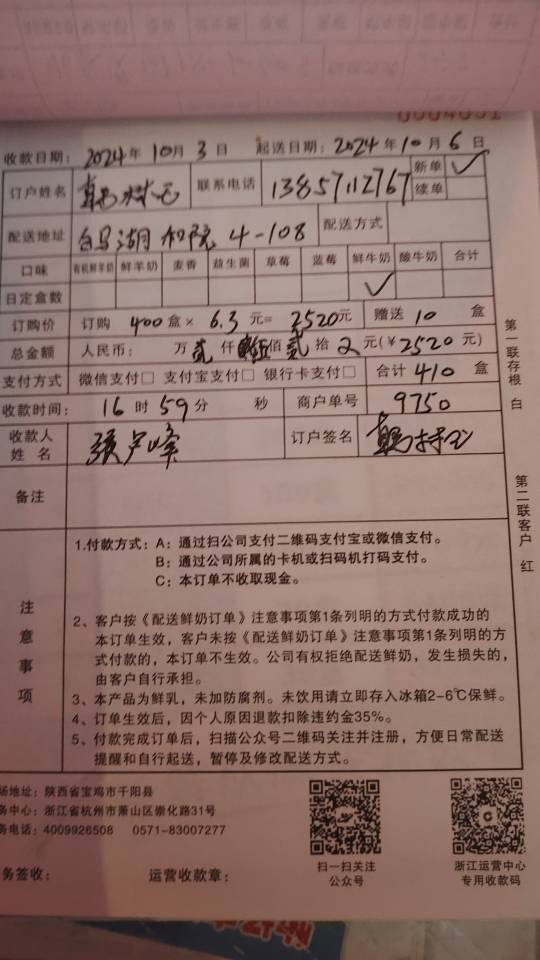 收款日期: 2024年10月3日 起送日期: 2024年10月6日
订户姓名 联系电话 13857112767 新单 ✓
续单
配送地址 白马湖和院 4-108 配送方式
口味 有机鲜羊奶 鲜羊奶 麦香 益生菌 草莓 蓝莓 鲜牛奶 酸牛奶 合计
日定盒数 ✓
订购价 订购 400 盒× 6.3 元= 2520元 赠送 10 盒
总金额 人民币: 万 贰 仟 伍佰 贰 拾 2 元(¥2520元)
支付方式 微信支付□ 支付宝支付□ 银行卡支付□ 合计 410 盒
收款时间: 16 时 59 分 秒 商户单号 9750
收款人姓名 张卢峰 订户签名
备注
第一联存根 白
第二联客户 红
注意事项
1.付款方式: A: 通过扫公司支付二维码支付宝或微信支付。
B: 通过公司所属的卡机或扫码机打码支付。
C: 本订单不收取现金。
2、客户按《配送鲜奶订单》注意事项第1条列明的方式付款成功的
本订单生效，客户未按《配送鲜奶订单》注意事项第1条列明的方
式付款的，本订单不生效。公司有权拒绝配送鲜奶，发生损失的，
由客户自行承担。
3、本产品为鲜乳，未加防腐剂。未饮用请立即存入冰箱2-6℃保鲜。
4、订单生效后，因个人原因退款扣除违约金35%。
5、付款完成订单后，扫描公众号二维码关注并注册，方便日常配送
提醒和自行起送，暂停及修改配送方式。
场地址: 陕西省宝鸡市千阳县
务中心: 浙江省杭州市萧山区崇化路31号
务电话: 4009926508 0571-83007277
务签收: 运营收款章:
扫一扫关注
公众号
浙江运营中心
专用收款码